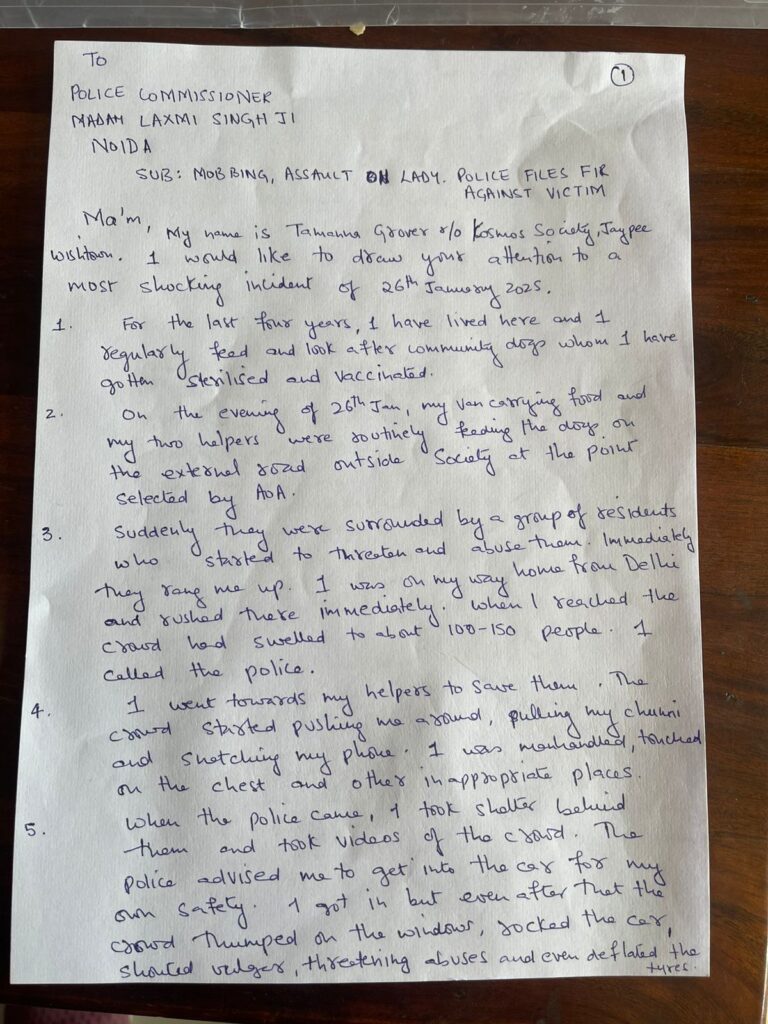 To
①
POLICE COMMISSIONER
MADAM LAXMI SINGH JI
NOIDA
SUB: MOBBING, ASSAULT ON LADY. POLICE FILES FIR
AGAINST VICTIM
Ma'm, My name is Tamanna Grover r/o Kosmos Society, Jaypee
wishtown. I would like to draw your attention to a
most shocking incident of 26th January 2025.
1. For the last four years, I have lived here and I
regularly feed and look after community dogs whom I have
gotten sterilised and vaccinated.
2. On the evening of 26th Jan, my van carrying food and
my two helpers were routinely feeding the dogs on
the external road outside Society at the point
selected by AOA.
3. Suddenly they were surrounded by a group of residents
who started to threaten and abuse them. Immediately
they rang me up. I was on my way home from Delhi
and rushed there immediately. When I reached the
crowd had swelled to about 100-150 people. I
called the police.
4. I went towards my helpers to save them. The
crowd started pushing me around, pulling my chunni
and snatching my phone. I was manhandled, touched
on the chest and other inappropriate places.
5. When the police came, I took shelter behind
them and took videos of the crowd. The
police advised me to get into the car for my
own safety. I got in but even after that the
crowd thumped on the windows, rocked the car,
shouted vulger, threatening abuses and even deflated the
tyres.